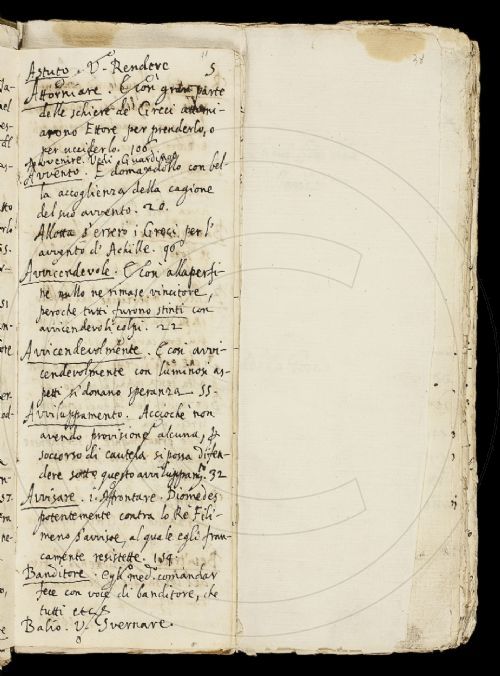 5
Astuto. V. Rendere
Attorniare. E con gran parte
delle schiere de' Greci attorni-
arono Ettore per prenderlo, o
per ucciderlo. 106.
Avvenire. Vedi Guardingo
Avvento. E domandorlo con bel-
la accoglienza della cagione
del suo avvento. 20.
Allotta s'ersero i Greci per l'
avvento d'Achille. 90.
Avvicendevole. E con allaperfi-
ne nullo ne rimase vincitore,
peroche tutti furono stinti con
avvicendevoli colpi. 22
Avvicendevolmente. E così avvi-
cendevolmente con luminosi as-
petti si donano speranza 55.
Avviluppamento. Accioche non
avendo provisione alcuna, di
soccorso di cautela si possa difen-
dere sotto questo avviluppam.º 32
Avvisare. i. Affrontare. Diomedes
potentemente contra lo Re Fili-
meno s'avvisoe, al quale egli fran-
camente resistette. 154
Banditore. egli med.º comandar
fece con voce di banditore, che
tutti etc.
Balio. V. Svernare.
38